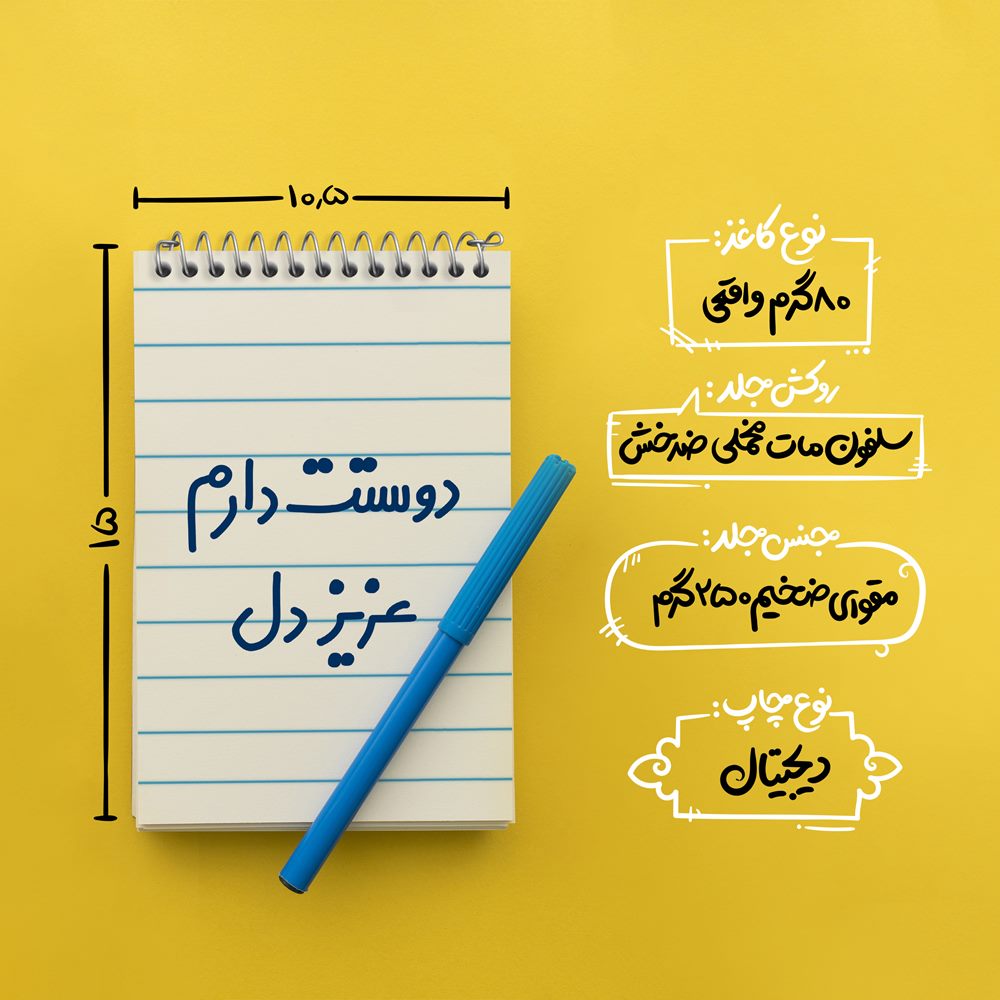 ۱۰٫۵
۱۵
دوستت دارم
عزیز دل
نوع کاغذ:
۸۰گرم واقعی
روکش جلد:
سلفون مات مخملی ضدخش
جنس جلد:
مقوای ضخیم ۲۵۰گرم
نوع چاپ:
دیجیتال